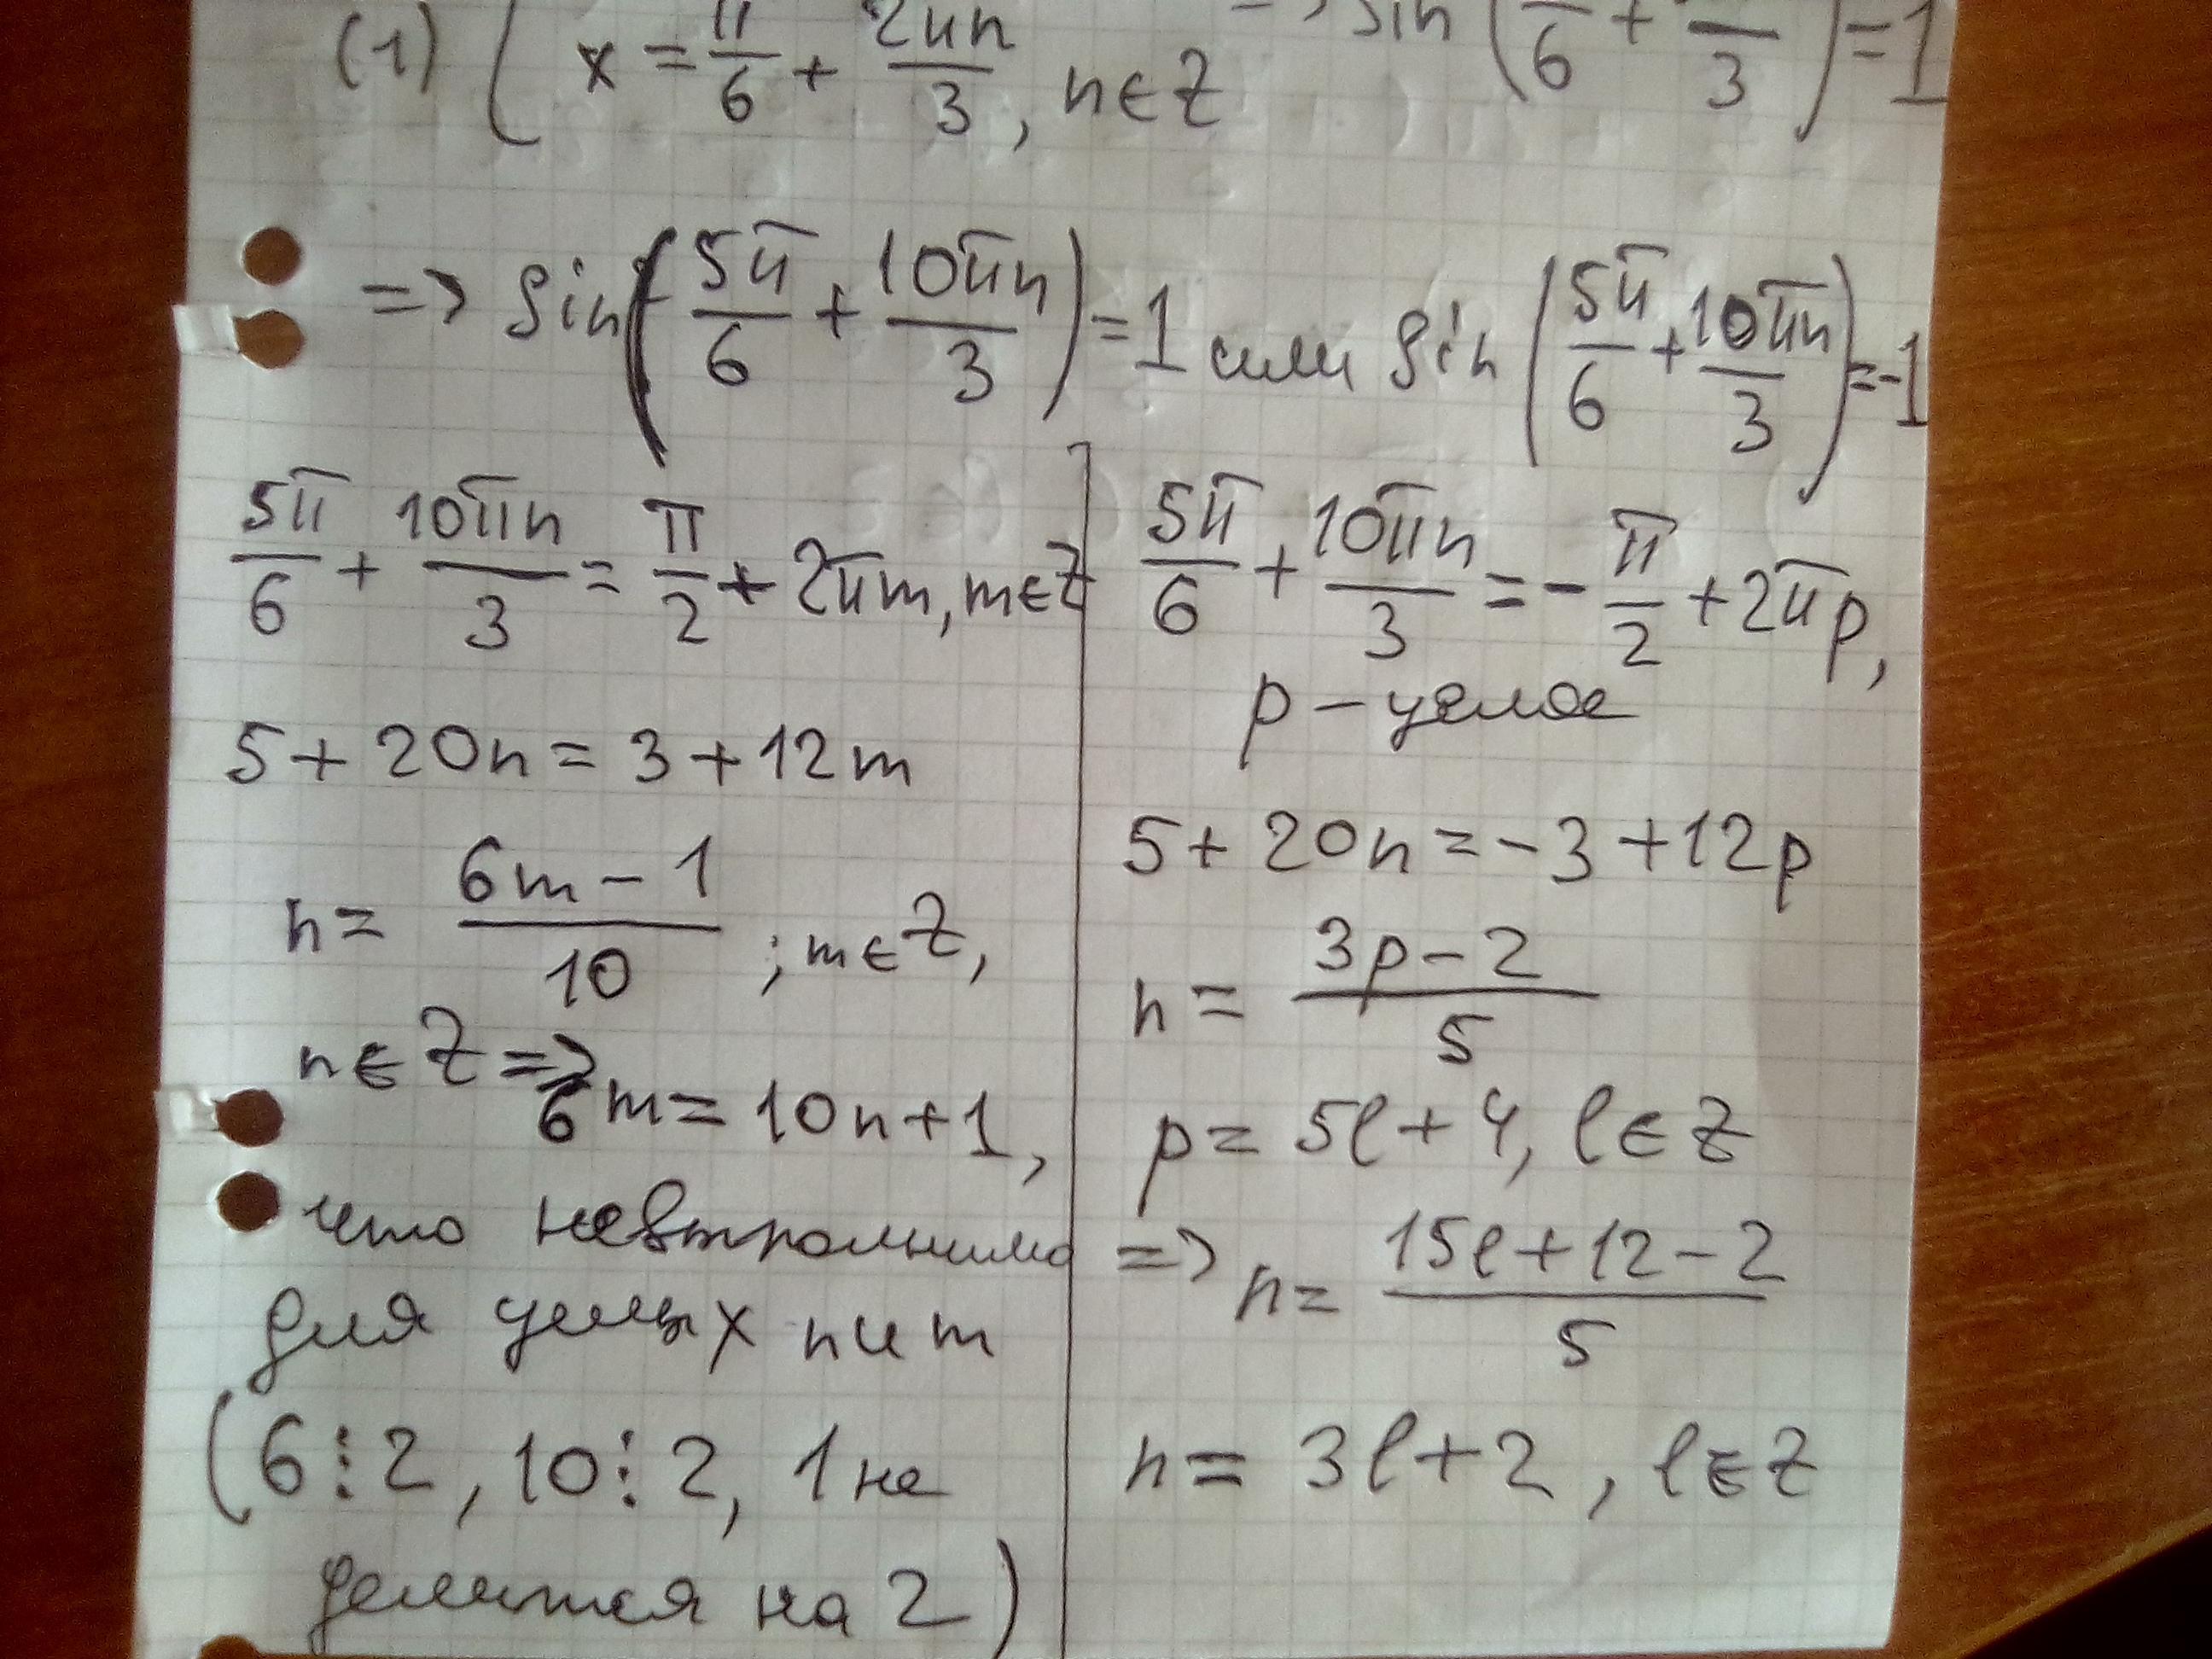 (1) { x = π/6 + 2πn/3, n∈Z => sin(π/6 + /3) = 1
=> sin(5π/6 + 10πn/3) = 1 или sin(5π/6 + 10πn/3) = -1
5π/6 + 10πn/3 = π/2 + 2πm, m∈Z
5 + 20n = 3 + 12m
n = (6m - 1)/10 ; m∈Z,
n∈Z => 6m = 10n + 1,
что невыполнимо
для целых n и m
(6⋮2, 10⋮2, 1 не
делится на 2)
5π/6 + 10πn/3 = -π/2 + 2πp,
p - целое
5 + 20n = -3 + 12p
n = (3p - 2)/5
p = 5l + 4, l∈Z
=> n = (15l + 12 - 2)/5
n = 3l + 2, l∈Z